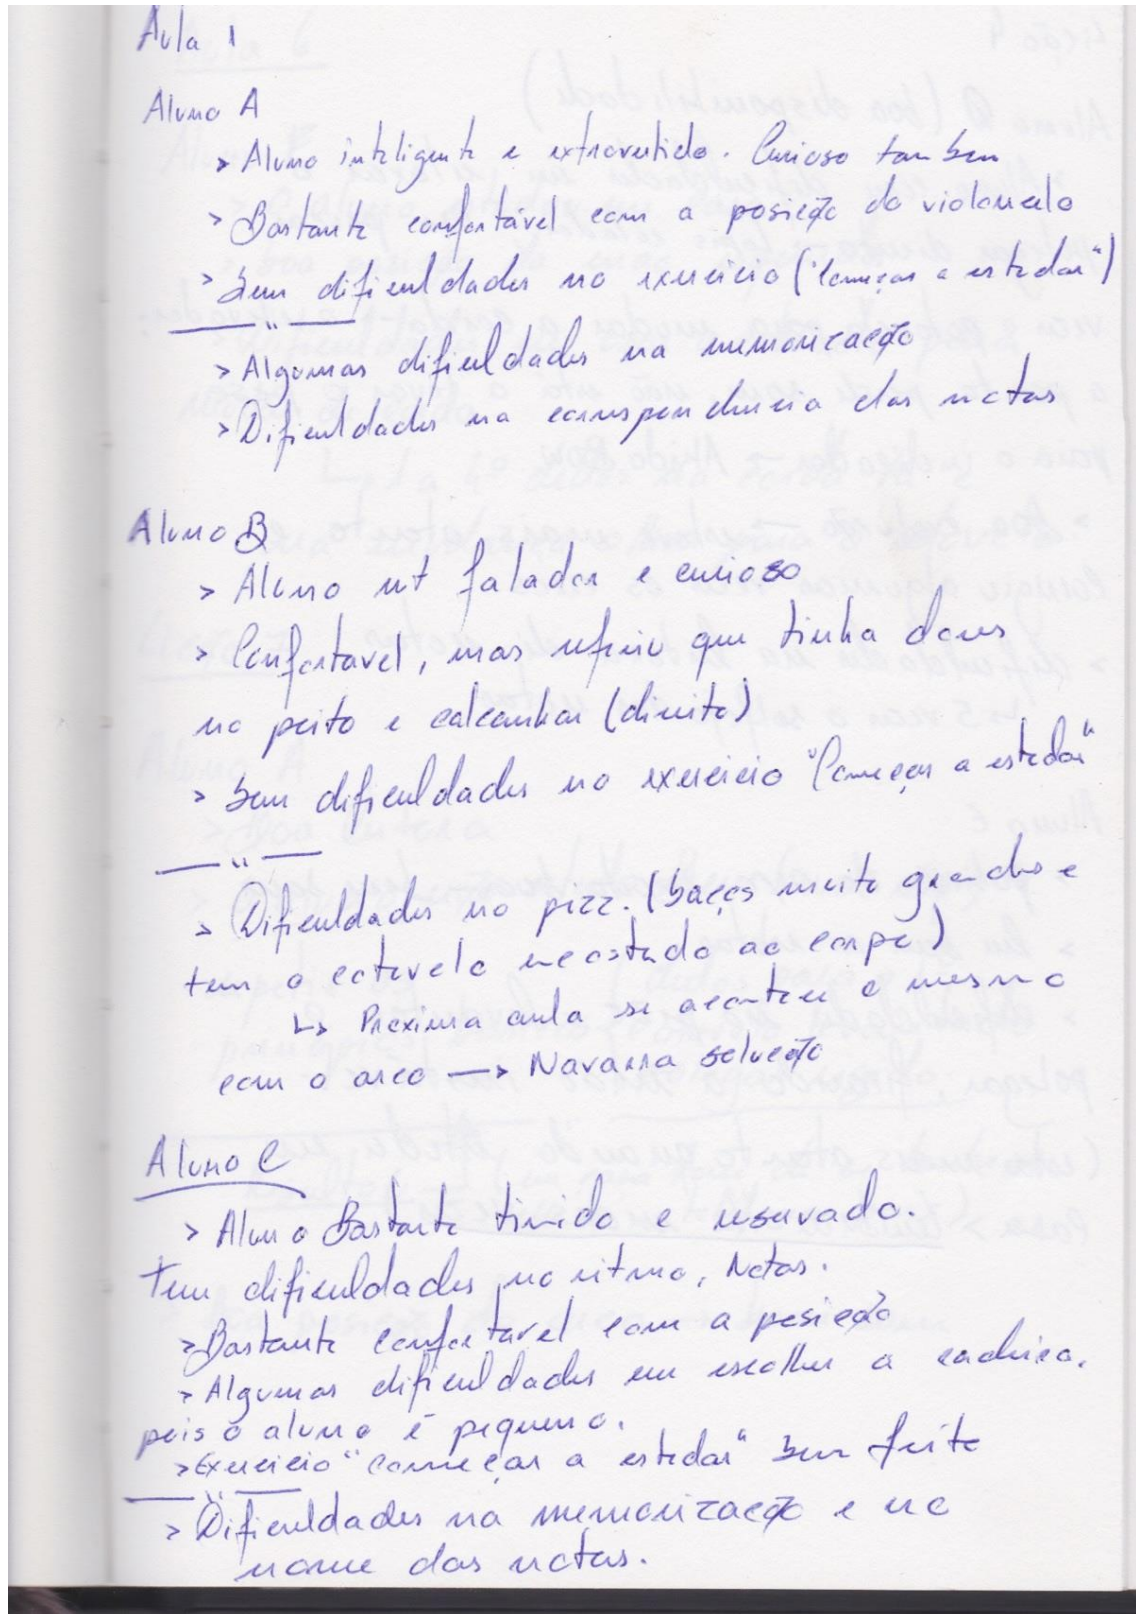 Aula 1
Aluno A
> Aluno inteligente e extrovertido. Curioso tambem
> Bastante confortável com a posição do violoncelo
> Sem dificuldades no exercicio ("Começar a estudar")
—— " ——
> Algumas dificuldades na memorização
> Dificuldades na correspondencia das notas
Aluno B
> Aluno mt falador e curioso
> Confortavel, mas referiu que tinha dores
no peito e calcanhar (direito)
> Sem dificuldades no exercicio "Começar a estudar"
—— " ——
> Dificuldades no pizz. (braços muito grandes e
tem o cotovelo encostado ao corpo)
↳ Proxima aula se acontecer o mesmo
com o arco —> Navarra solução
Aluno C
> Aluno Bastante timido e reservado.
Tem dificuldades no ritmo, Notas.
> Bastante confortavel com a posição
> Algumas dificuldades em escolher a cadeira,
pois o aluno é pequeno.
> Exercicio "começar a estudar" bem feito
—— " ——
> Dificuldades na memorização e no
nome das notas.